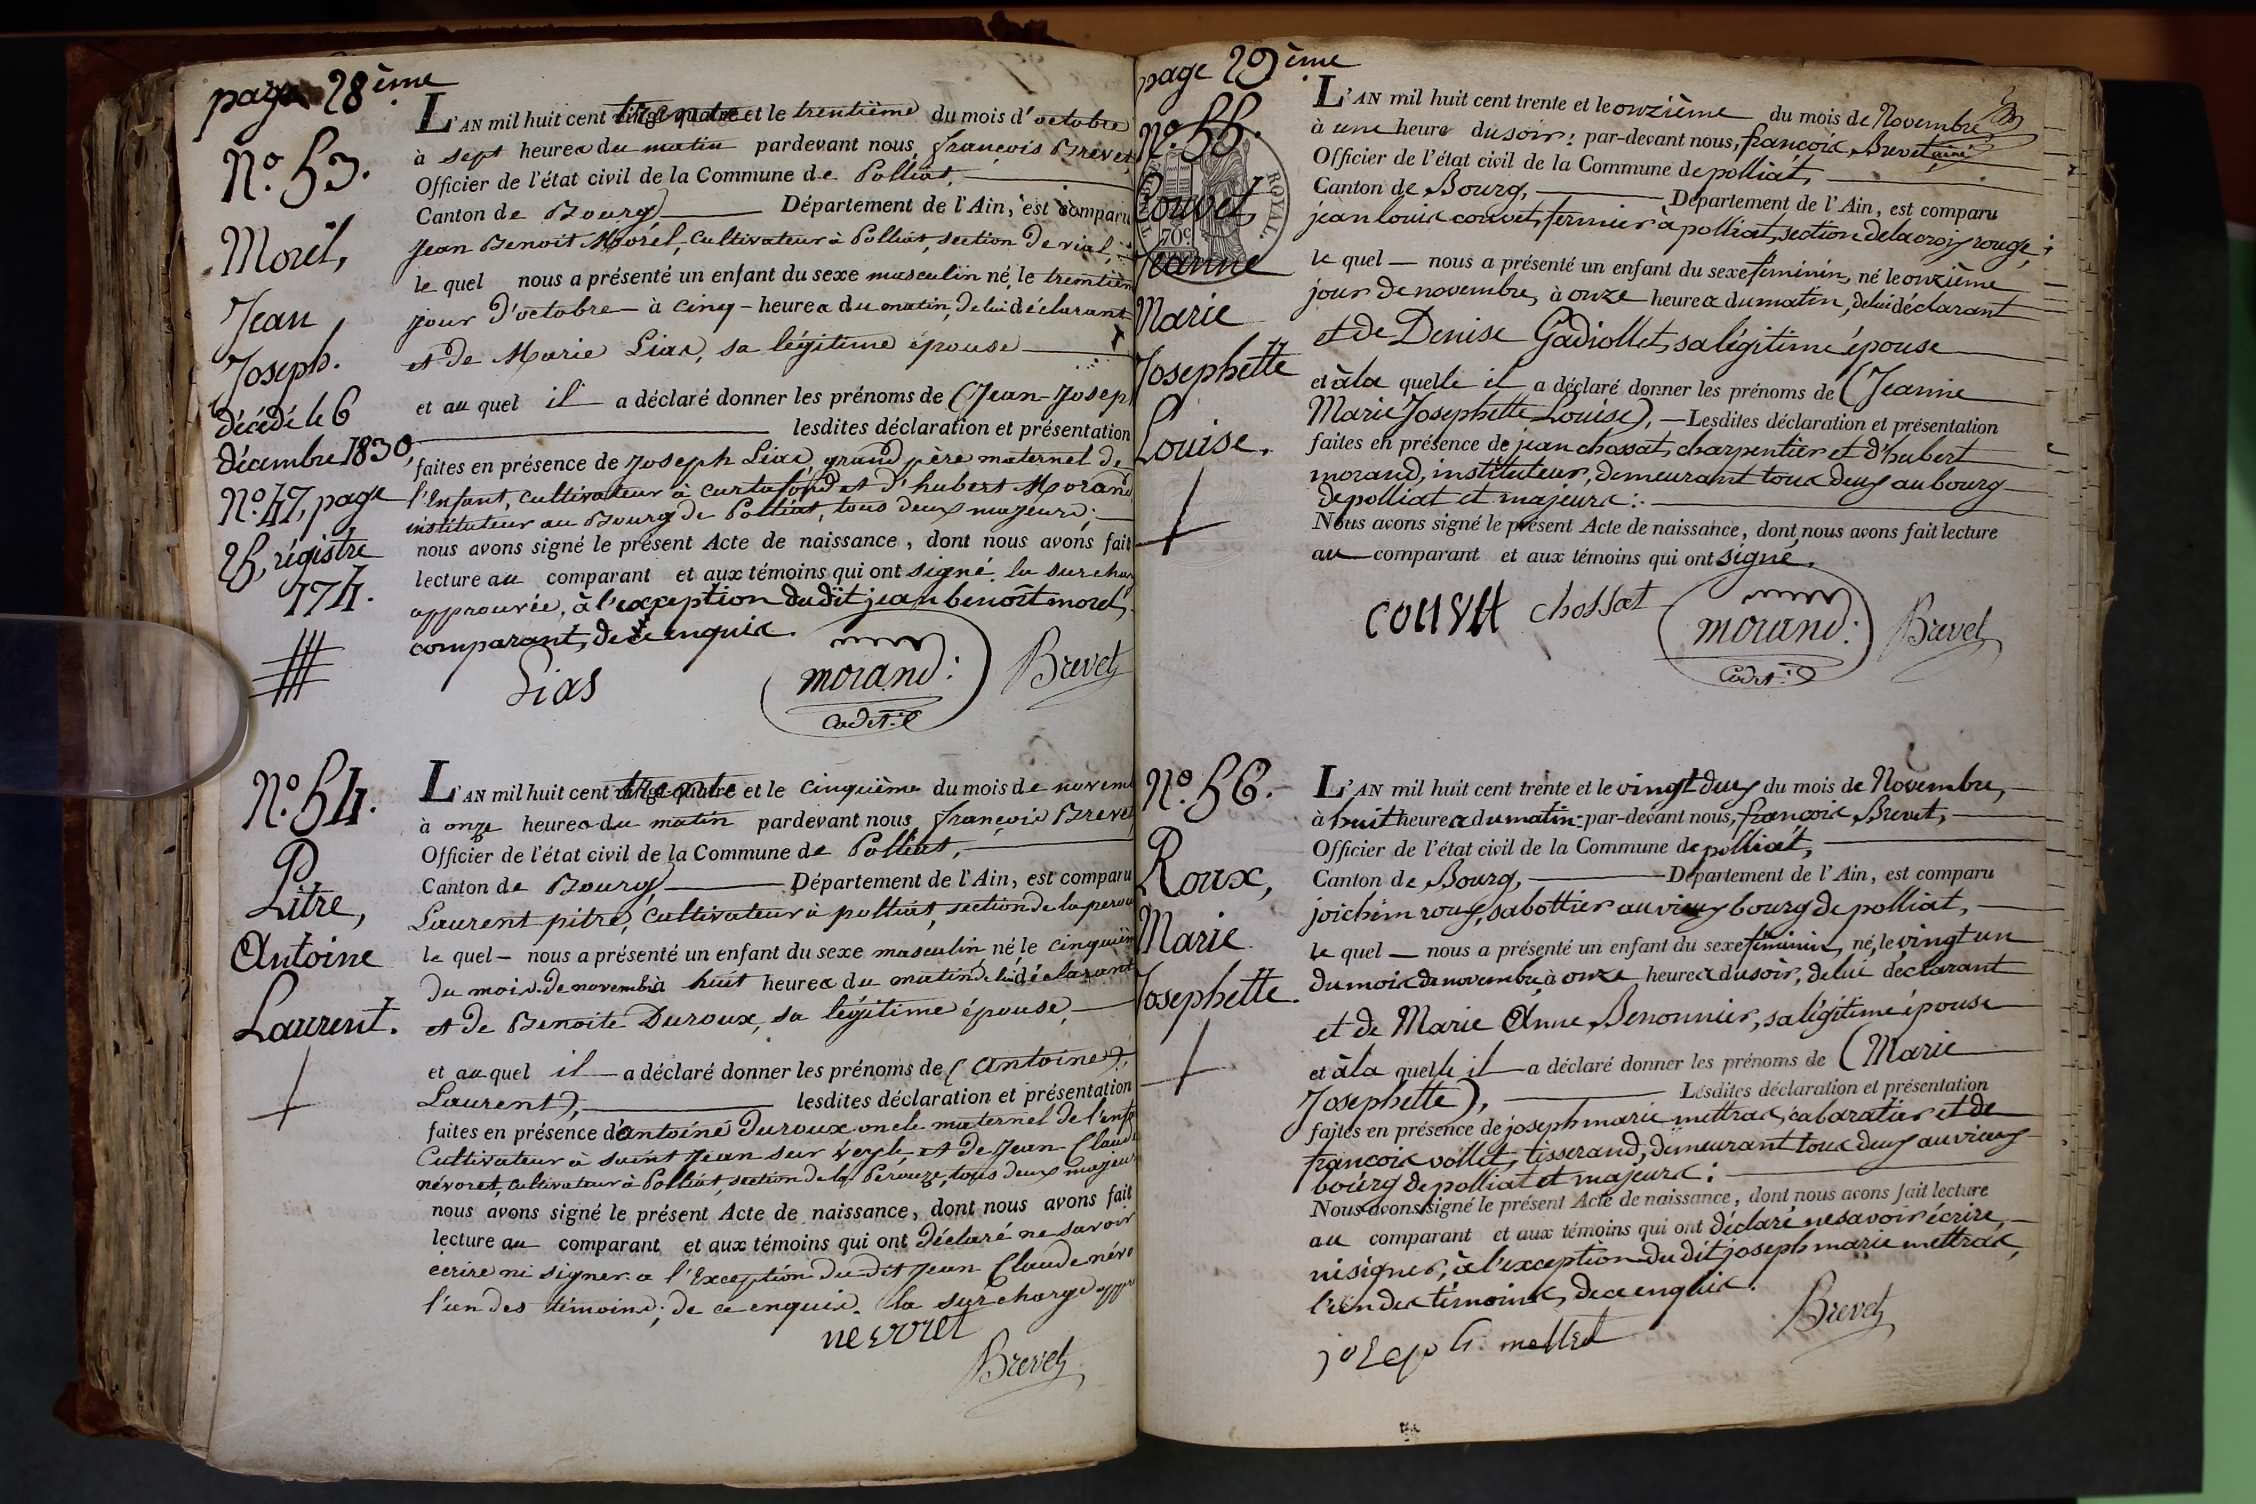 page 28ème
N.° 53.
Morel,
Jean
Joseph.
décédé le 6
décembre 1830,
N.° 47, page
25, régistre
174.
L'AN mil huit cent trente et le trentième du mois d'octobre
à sept heures du matin pardevant nous, françois Brevet,
Officier de l'état civil de la Commune de Polliat,
Canton de Bourg, Département de l'Ain, est comparu
Jean Benoit Morel, Cultivateur à Polliat, section de vial,
le quel nous a présenté un enfant du sexe masculin né, le trentièm
jour d'octobre à cinq heures du matin, de lui déclarant
et de Marie Lias, sa légitime épouse
et au quel il a déclaré donner les prénoms de (Jean-Josep
lesdites déclaration et présentation
faites en présence de Joseph Lias, grand père maternel de
l'Enfant, Cultivateur à Curtafond et d'hubert Morand
instituteur au Bourg de Polliat, tous deux majeurs;
nous avons signé le présent Acte de naissance, dont nous avons fait
lecture au comparant et aux témoins qui ont signé. la surchar
approuvée, à l'exception du dit jean benoit morel,
comparant, de ce enquis.
Lias morand: cadet. Brevet
N.° 54.
Pitre,
Antoine
Laurent.
L'AN mil huit cent trente et le cinquième du mois de novem
à onze heures du matin pardevant nous françois Brevet
Officier de l'état civil de la Commune de Polliat,
Canton de Bourg, Département de l'Ain, est comparu
Laurent pitre, Cultivateur à polliat, section de la perou
le quel nous a présenté un enfant du sexe masculin né, le cinquièm
du mois de novembre à huit heures du matin de lui déclarant
et de Benoite Duroux, sa légitime épouse,
et au quel il a déclaré donner les prénoms de (Antoine
Laurent), lesdites déclaration et présentation
faites en présence d'antoine Duroux oncle maternel de l'enfa
Cultivateur à saint Jean sur veyle et de Jean Claude
névoret, cultivateur à Polliat, section de la Perouze, tous deux majeur
nous avons signé le présent Acte de naissance, dont nous avons fait
lecture au comparant et aux témoins qui ont Déclaré ne savoir
écrire ni signer a l'Exception du dit Jean Claude névo
l'un des témoins; de ce enquis. la surcharge appr
nevoret
Brevet
page 29ème
N.° 55.
Couvet,
Jeanne
Marie
Josephette
Louise.
ROYAL.
70c
L'AN mil huit cent trente et le onzième du mois de Novembre
à une heure du soir: par-devant nous, françois Brevet, ainé
Officier de l'état civil de la Commune de polliat,
Canton de Bourg, Département de l'Ain, est comparu
jean louis couvet, fermier à polliat, section de la croix rouge;
le quel nous a présenté un enfant du sexe féminin, né le onzième
jour de novembre, à onze heures du matin, de lui déclarant
et de Denise Gadiollet, sa légitime épouse
et à la quelle il a déclaré donner les prénoms de (Jeanne
Marie Josephette Louise), Lesdites déclaration et présentation
faites en présence de jean chossat, charpentier et d'hubert
morand, instituteur, demeurant tous deux au bourg
de polliat et majeurs:
Nous avons signé le présent Acte de naissance, dont nous avons fait lecture
au comparant et aux témoins qui ont signé.
couvet chossat morand: cadet. Brevet
N.° 56.
Roux,
Marie
Josephette.
L'AN mil huit cent trente et le vingt deux du mois de Novembre,
à huit heures du matin par-devant nous, françois Brevet,
Officier de l'état civil de la Commune de polliat,
Canton de Bourg, Département de l'Ain, est comparu
joichim roux, sabottier au vieux bourg de polliat,
le quel nous a présenté un enfant du sexe féminin, né, le vingt un
du mois de novembre, à onze heures du soir, de lui déclarant
et de Marie Anne Benonnier, sa légitime épouse
et à la quelle il a déclaré donner les prénoms de (Marie
Josephette), Lesdites déclaration et présentation
faites en présence de joseph marie mettras, cabaratier et de
françois vollet, tisserand, demeurant tous deux au vieux
bourg de polliat et majeurs:
Nous avons signé le présent Acte de naissance, dont nous avons fait lecture
au comparant et aux témoins qui ont déclaré ne savoir écrire,
ni signer, à l'exception du dit joseph marie mettras,
l'un des témoins, de ce enquis.
Brevet